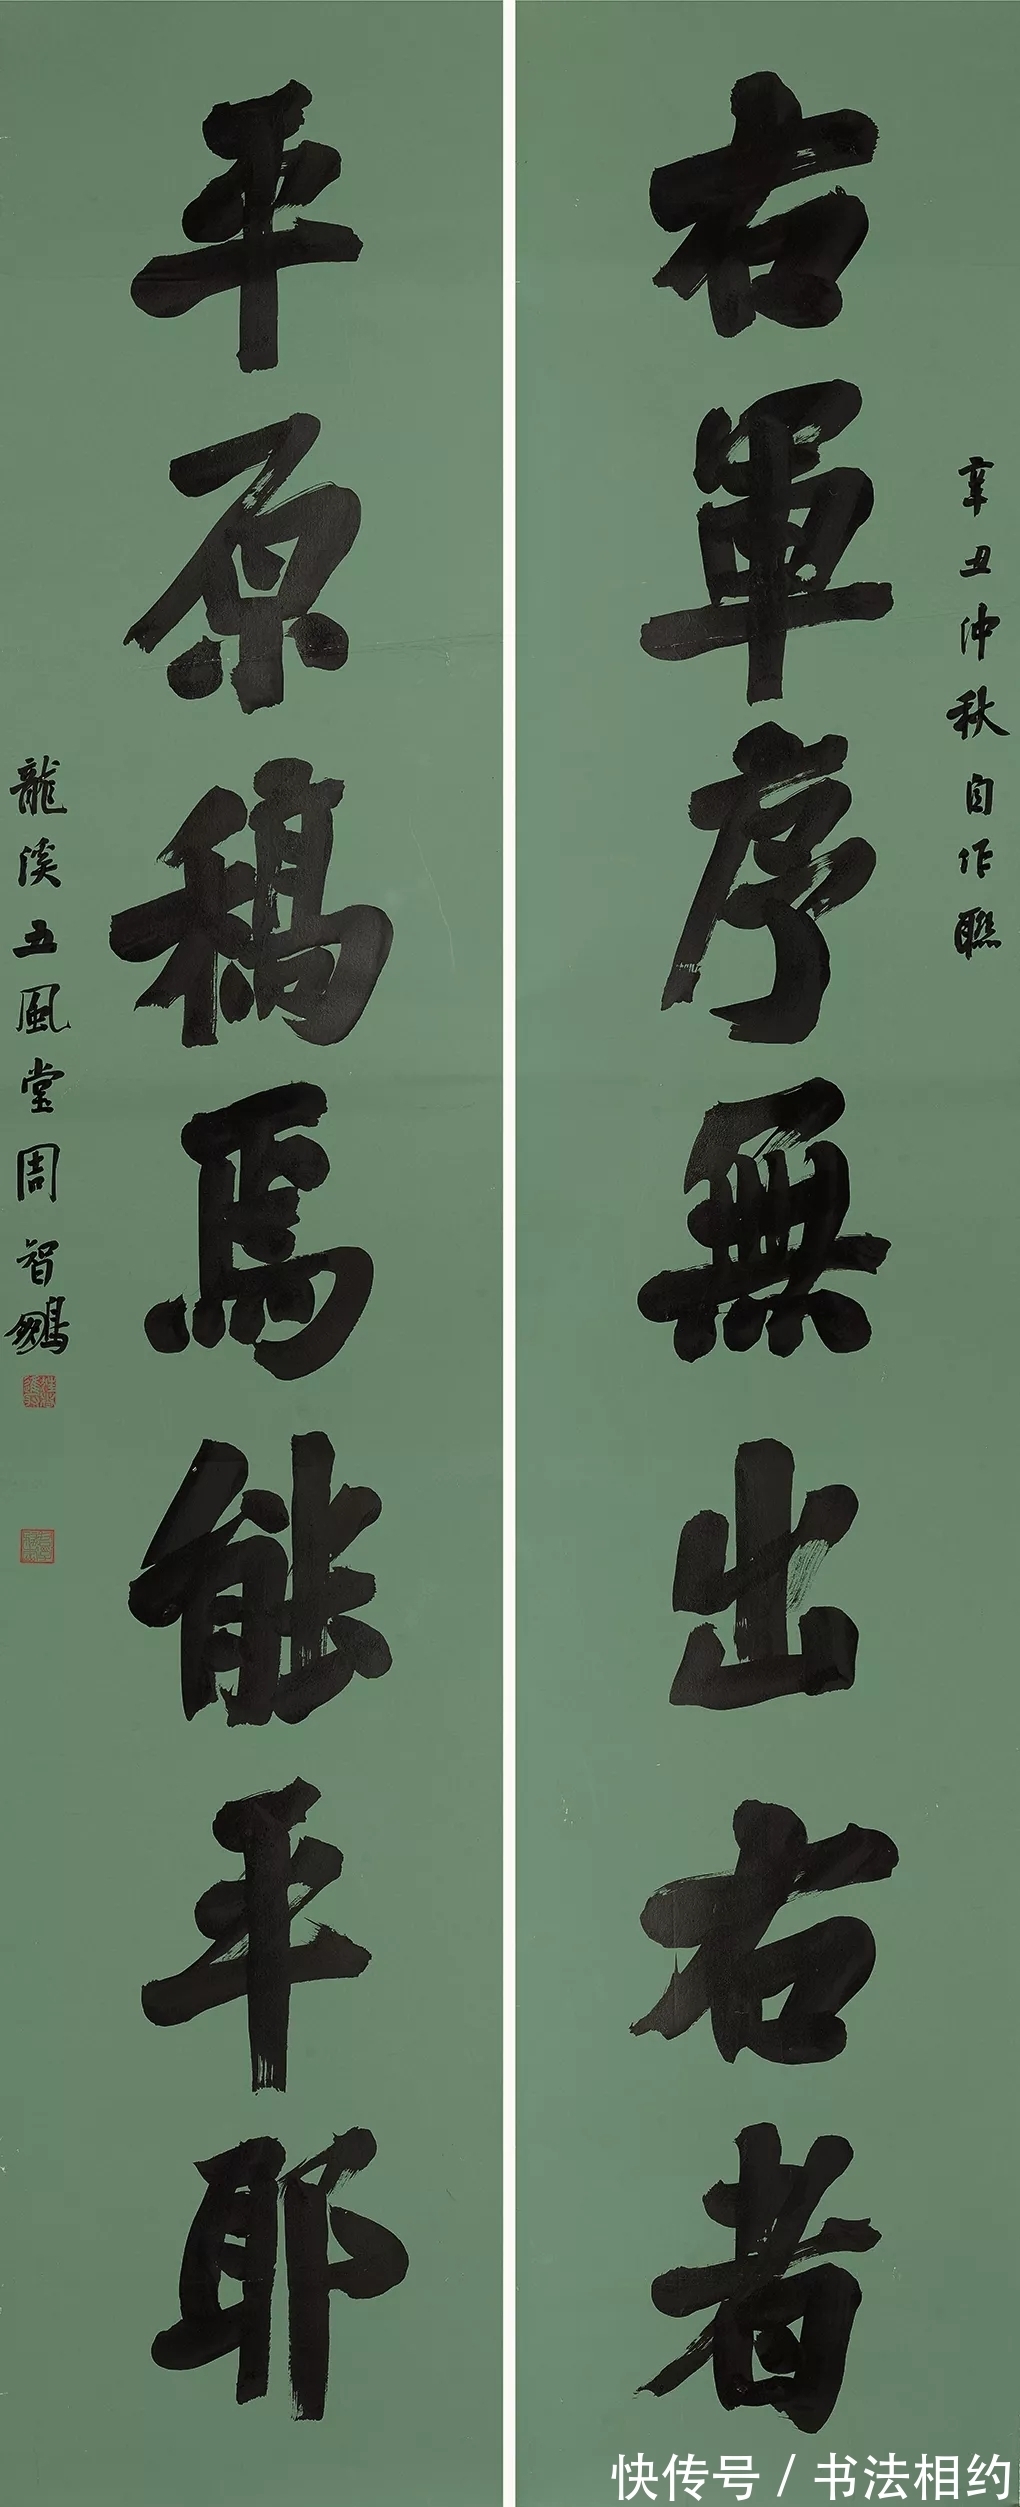 辛丑仲秋自作聯
右軍序無出右者
平原稿焉能平耶
龍溪五風堂周智鵬
快传号/书法相约